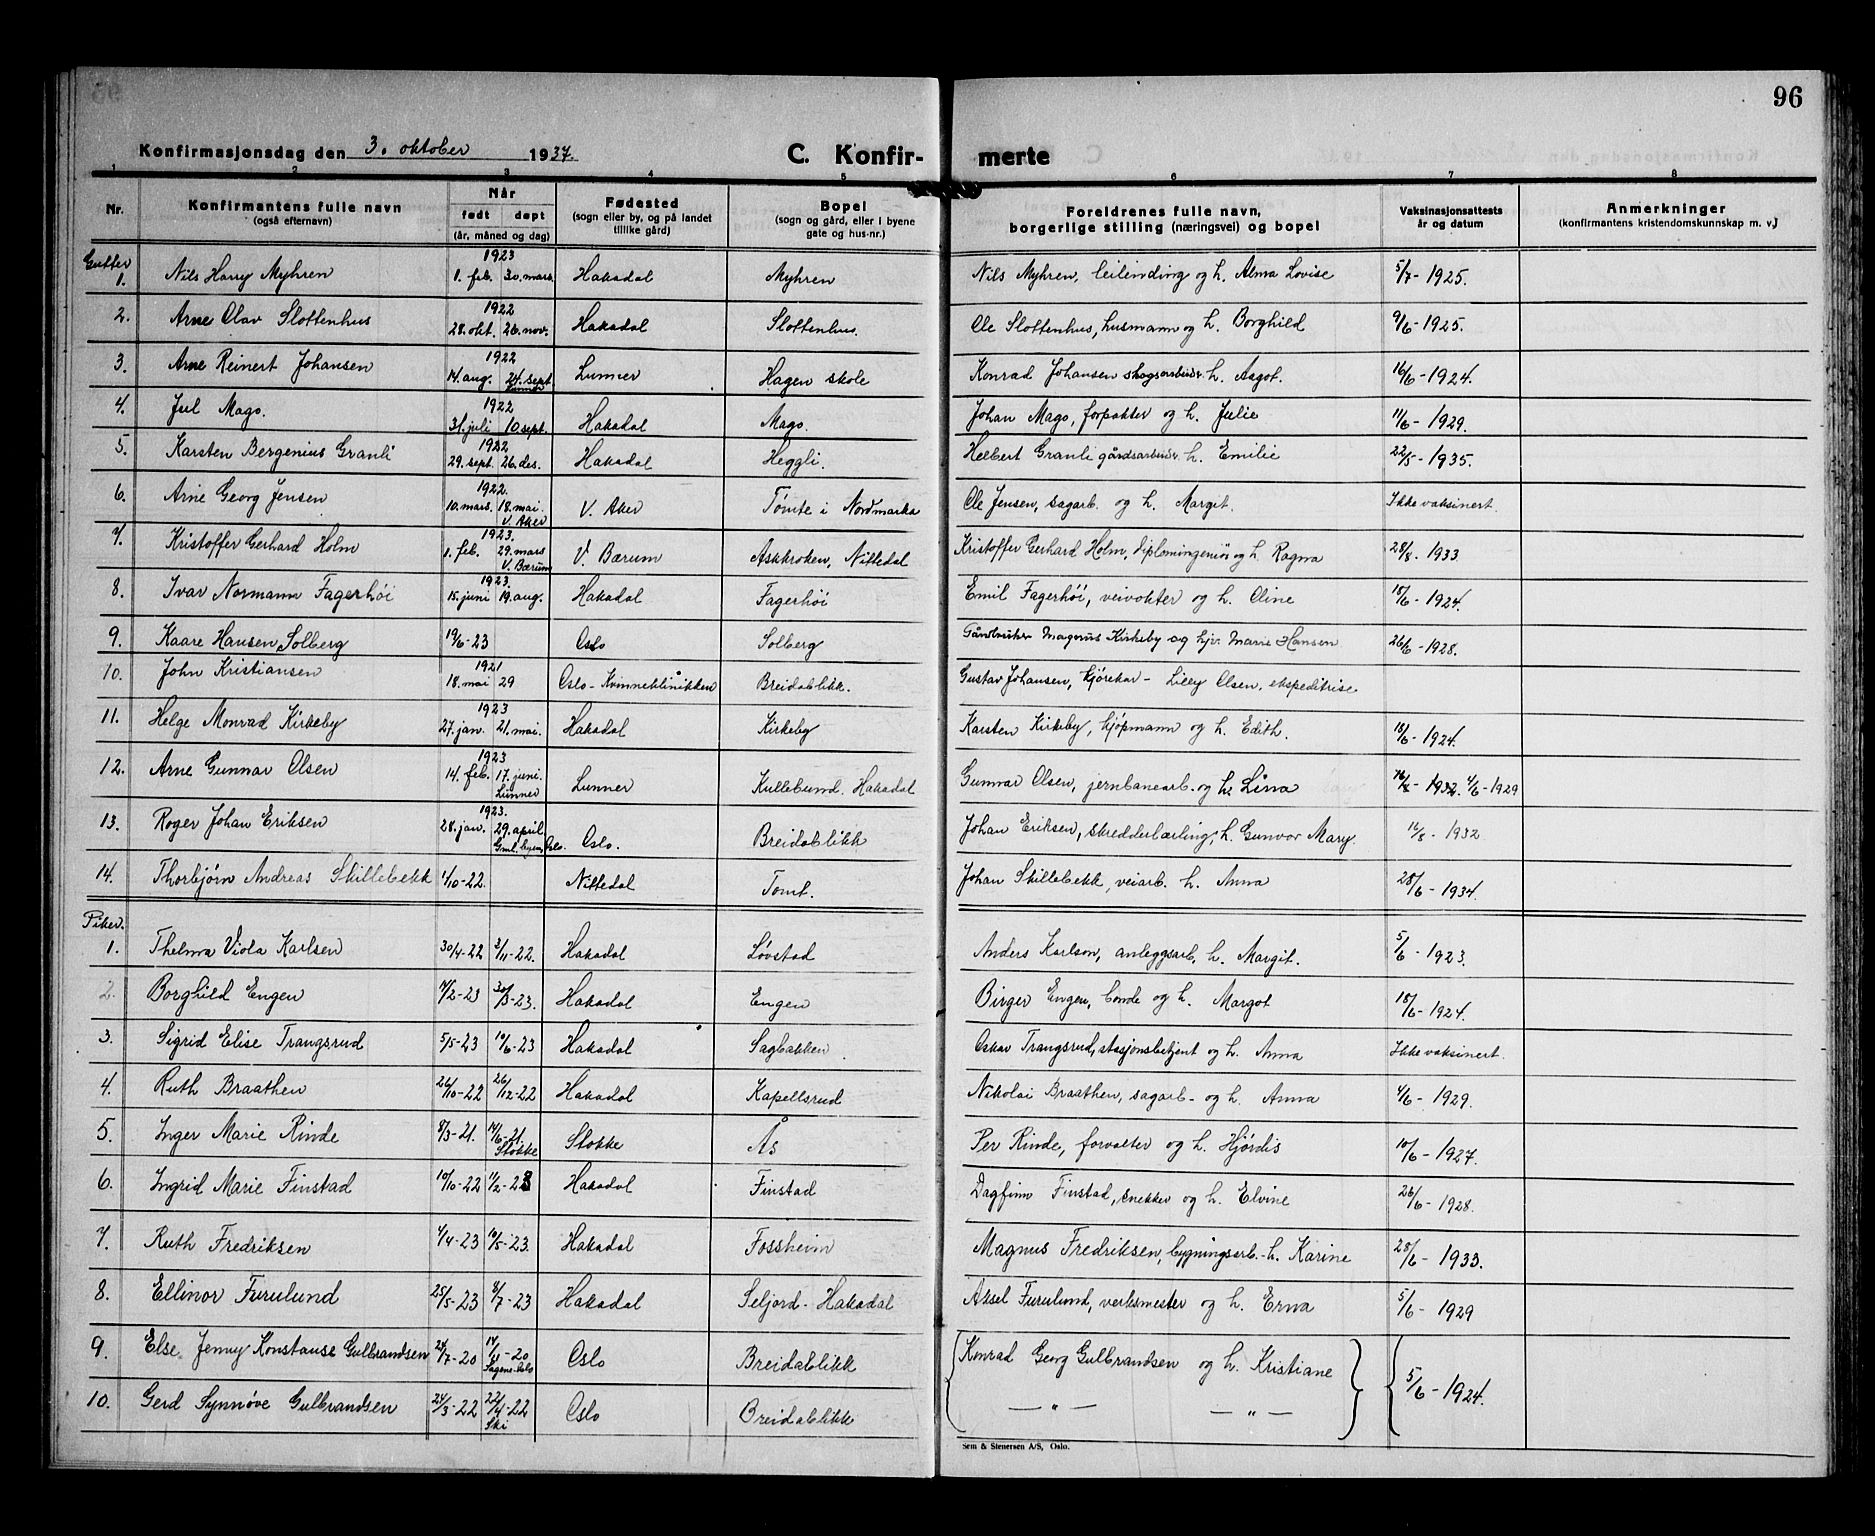 96
Konfirmasjonsdag den 3. oktober 1937. C. Konfir- merte
1 2 3 4 5 6 7 8
Nr. Konfirmantens fulle navn (også efternavn) Når født døpt (år, måned og dag) Fødested (sogn eller by, og på landet tillike gård) Bopel (sogn og gård, eller i byene gate og hus-nr.) Foreldrenes fulle navn, borgerlige stilling (næringsvei) og bopel Vaksinasjonsattests år og datum Anmerkninger (konfirmantens kristendomskunnskap m. v.)
Gutter
1. Nils Harry Myhren 1923 1. feb. 30. mars. Hakadal Myhren Nils Myhren, leilending og h. Alma Lovise 5/7 - 1925.
2. Arne Olav Slottenhus 1922 28. okt. 26. nov. Hakadal Slottenhus. Ole Slottenhus, husmann og h. Borghild 9/6 - 1925.
3. Arne Reinert Johansen 1922 14. aug. 24. sept. Lunner Lunner Hagen skole Konrad Johansen skogsarbeider h. Aagot. 16/6 - 1924.
4. Jul Mago. 1922 31. juli 10. sept. Hakadal Mago. Johan Mago, forpakter og h. Julie 11/6 - 1929.
5. Karsten Bergenius Granli 1922 29. sept. 26. des. Hakadal Heggli. Helbert Granli gårdsarbeider h. Emilie 22/5 - 1935.
6. Arne Georg Jensen 1922. 10. mars. 18. mai. V. Aker V. Aker Tømte i Nordmarka Ole Jensen, sagarb. og h. Margit. Ikke vaksinert
7. Kristoffer Gerhard Holm 1923. 1. feb. 29. mars V. Bærum V. Bærum Askkroken, Nittedal Kristoffer Gerhard Holm, diplomingeniør og h. Ragna 28/8. 1933
8. Ivar Normann Fagerhøi 1923. 15. juni 19. aug. Hakadal Fagerhøi Emil Fagerhøi, veivokter og h. Oline 18/6 - 1924.
9. Kaare Hansen Solberg 19/6-23 Oslo Solberg Gårdbruker Magnus Kirkeby og hjv. Marie Hansen 26/6 - 1928.
10. John Kristiansen 1921 18. mai 29 Oslo - Kvinneklinikken Breidablikk. Gustav Johansen, kjørekar - Lilly Olsen, ekspeditrise
11. Helge Monrad Kirkeby 1923 27. jan. 21. mai. Hakadal Kirkeby Karsten Kirkeby, kjøpmann og h. Edith. 18/6 - 1924.
12. Arne Gunnar Olsen 1923 14. feb. 17. juni. Lunner Lunner Kullebund. Hakadal Gunnar Olsen, jernbanearb. og h. Lina 1932. 4/6 - 1929
13. Roger Johan Eriksen 1923. 28. jan. 29. april. Gml. byen, Oslo. Oslo. Breidablikk Johan Eriksen, skredderlærling, h. Gunvor Mary. 12/8 - 1932
14. Thorbjørn Andreas Skillebekk 1/10-22. Nittedal Tomt. Johan Skillebekk, veiarb. h. Anna 28/6 - 1934.
Piker.
1. Thelma Viola Karlsen 30/4-22 3/11-22. Hakadal Løvstad Anders Karlson, anleggsarb. h. Margit. 5/6 - 1923.
2. Borghild Engen 7/2-23 30/3-23. Hakadal Engen Birger Engen, bonde og h. Margot 18/6 - 1924.
3. Sigrid Elise Trangsrud 5/5-23 10/6-23 Hakadal Sagbakken Oskar Trangsrud, stasjonsbetjent og h. Anna Ikke vaksinert.
4. Ruth Braathen 26/10-22 26/12-22 Hakadal Kapellsrud Nikolai Braathen, sagarb - og h. Anna 4/6 - 1929.
5. Inger Marie Rinde 8/3-21. 14/6-21. Stokke Stokke Ås Per Rinde, forvalter og h. Hjørdis 10/6 - 1927.
6. Ingrid Marie Finstad 10/10-22 11/2-23 Hakadal Finstad Dagfinn Finstad, snekker og h. Elvine 26/6 - 1928.
7. Ruth Fredriksen 4/4-23 10/5-23. Hakadal Fossheim Magnus Fredriksen, bygningsarb. - h. Karine 28/6 - 1933.
8. Ellinor Furulund 25/5-23 8/7-23 Hakadal Seljord - Hakadal Aksel Furulund, verksmester og h. Erna 5/6 - 1929
9. Else Jenny Konstanse Gulbrandsen 24/7-20 14/11-20 Sagene-Oslo Oslo Breidablikk Konrad Georg Gulbrandsen og h. Kristiane 5/6 - 1924.
10. Gerd Synnøve Gulbrandsen 24/3-22 22/4-22 Ski Oslo Breidablikk — „ — — „ —
Sem & Stenersen A/S, Oslo.